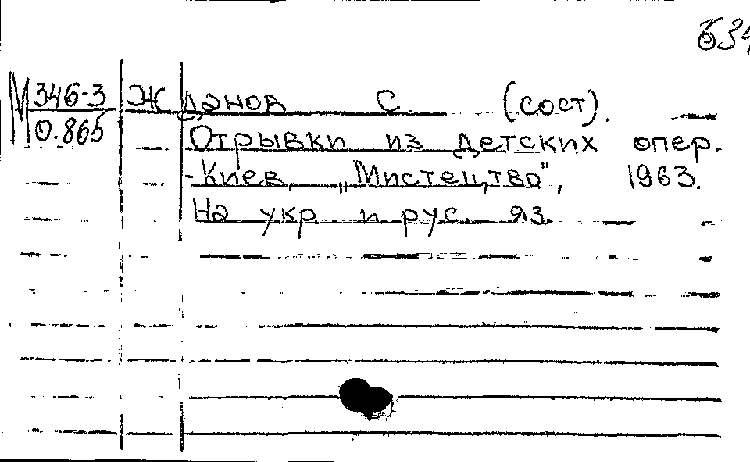 М 346-3 Жданов С. (сост).
0.865 Отрывки из детских опер.
- Киев, „Мистецтво", 1963.
На укр. и рус. яз.